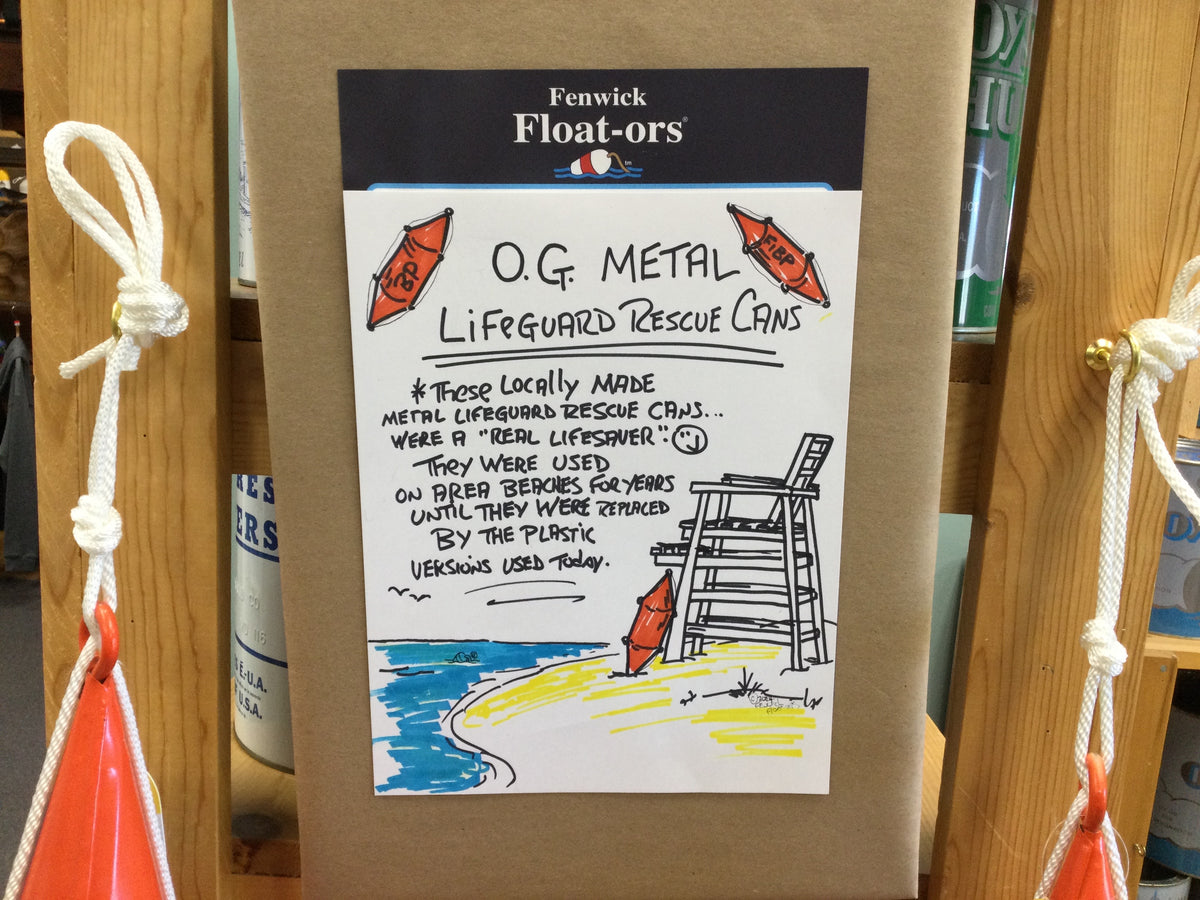 Fenwick
Float-ors®
O.G. METAL
LIFEGUARD RESCUE CANS
BP
FIBP
*THESE LOCALLY MADE
METAL LIFEGUARD RESCUE CANS...
WERE A "REAL LIFESAVER".
THEY WERE USED
ON AREA BEACHES FOR YEARS
UNTIL THEY WERE REPLACED
BY THE PLASTIC
VERSIONS USED TODAY.
RES
ERS
CO
116
E.-U.A.
U.S.A.